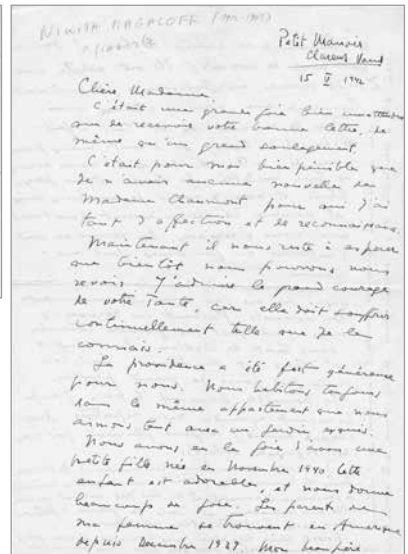 NIKITA MAGALOFF
Petit Manoir
Clarens Vaud
15 V 1942
Chère Madame,
C'était une grande joie bien inattendue
que de recevoir votre bonne lettre, de
même qu'un grand soulagement.
C'était pour moi bien pénible que
je n'avais aucune nouvelle de
Madame Chaumont pour qui j'ai
tant d'affection et de reconnaissance.
Maintenant il nous reste à espérer
que bientôt nous pourrons nous
revoir. J'admire le grand courage
de votre Tante, car elle doit souffrir
continuellement telle que je la
connais.
La providence a été fort généreuse
pour nous. Nous habitons toujours
dans le même appartement que nous
aimons tant avec un jardin exquis.
Nous avons eu la joie d'avoir une
petite fille née en Novembre 1940 Cette
enfant est adorable, et nous donne
beaucoup de joie. Les parents de
ma femme se trouvent en Amérique
depuis Décembre 1939. Mon beau père